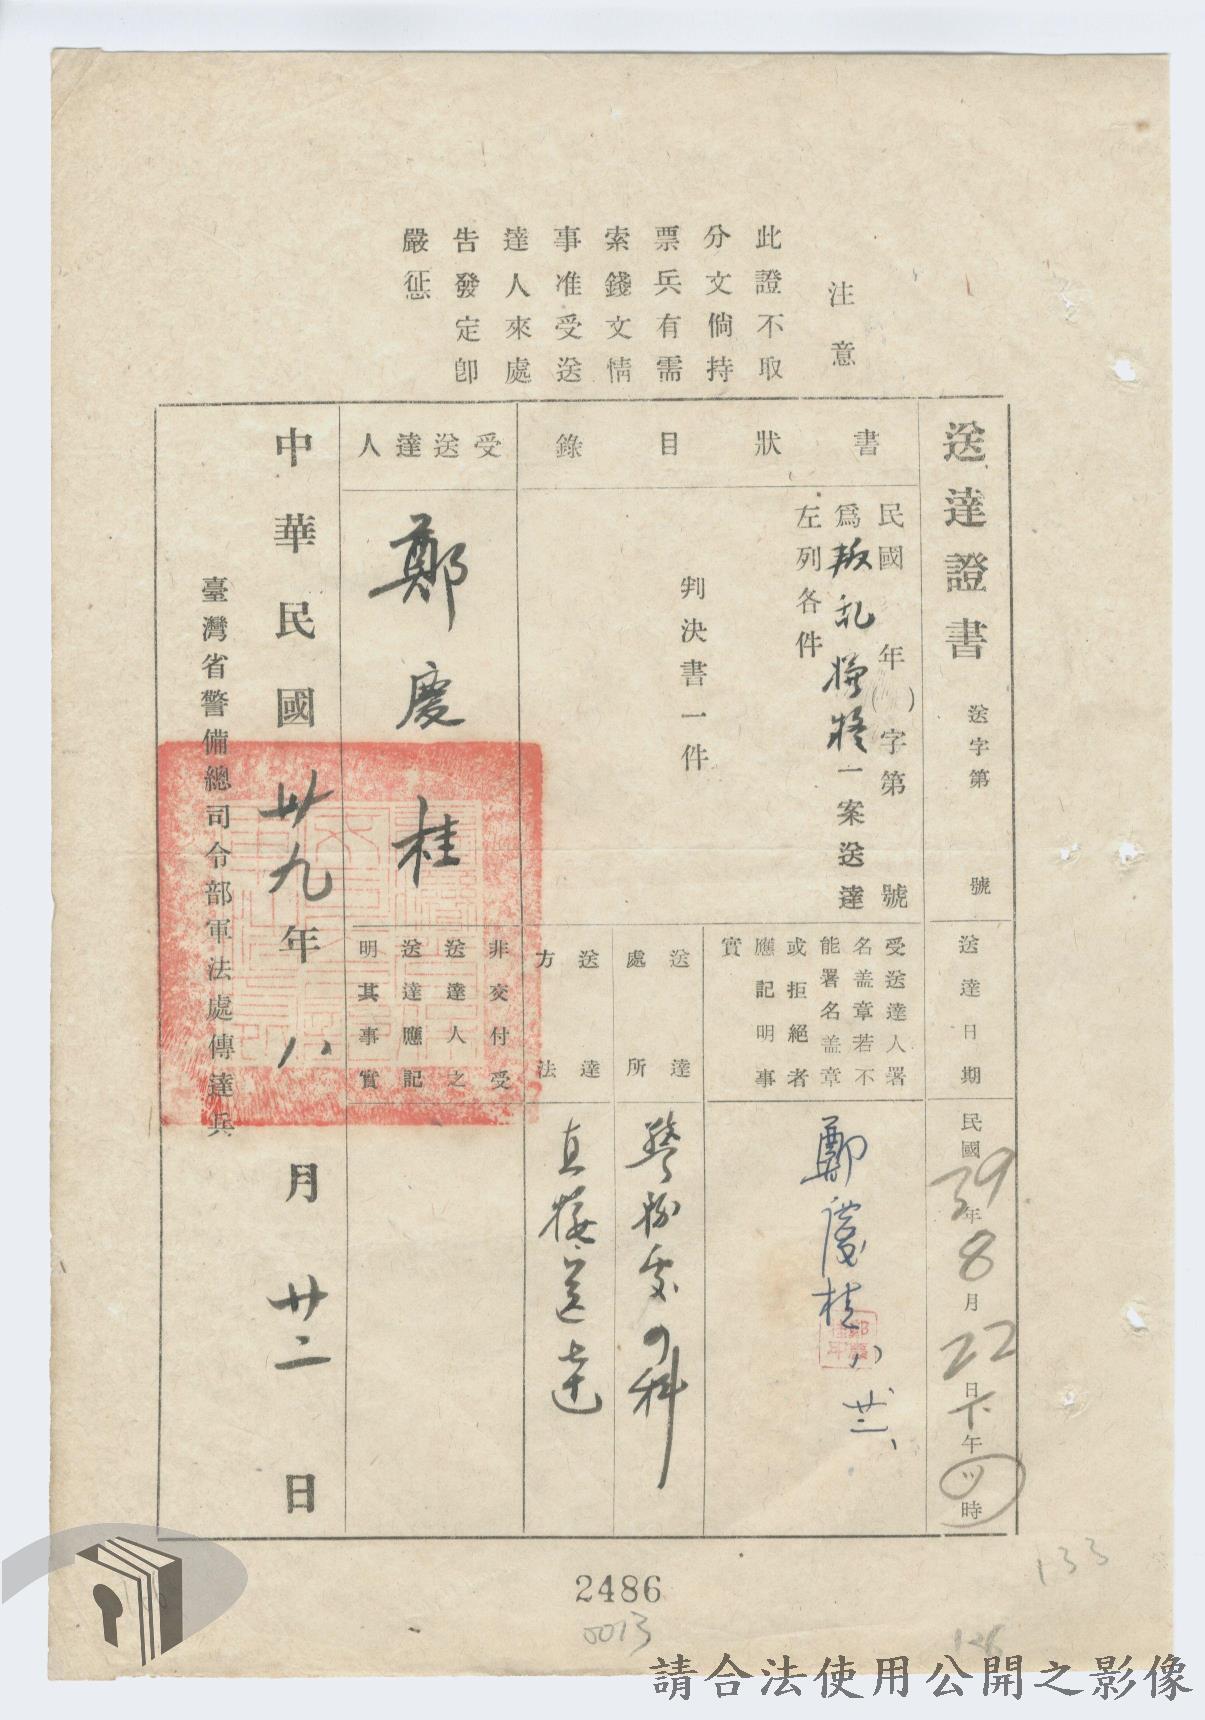 注意
此證不取
分文倘持
票兵有需
索錢文情
事准受送
達人來處
告發定卽
嚴懲
送達證書
送字第　號
送達日期
民國39年8月22日下午四時
書狀目錄
民國　年（　）字第　號
爲叛乱　一案送達
左列各件
判決書一件
受送達人署
名盖章若不
能署名盖章
或拒絕者
應記明事
實
鄭慶桂
八
送達
處所
軍法處　科
送達
方法
直接送達
受送達人
鄭慶桂
非交付受
送達人之
送達應記
明其事實
中華民國卅九年八月廿二日
臺灣省警備總司令部軍法處傳達兵
2486
0013
133
請合法使用公開之影像